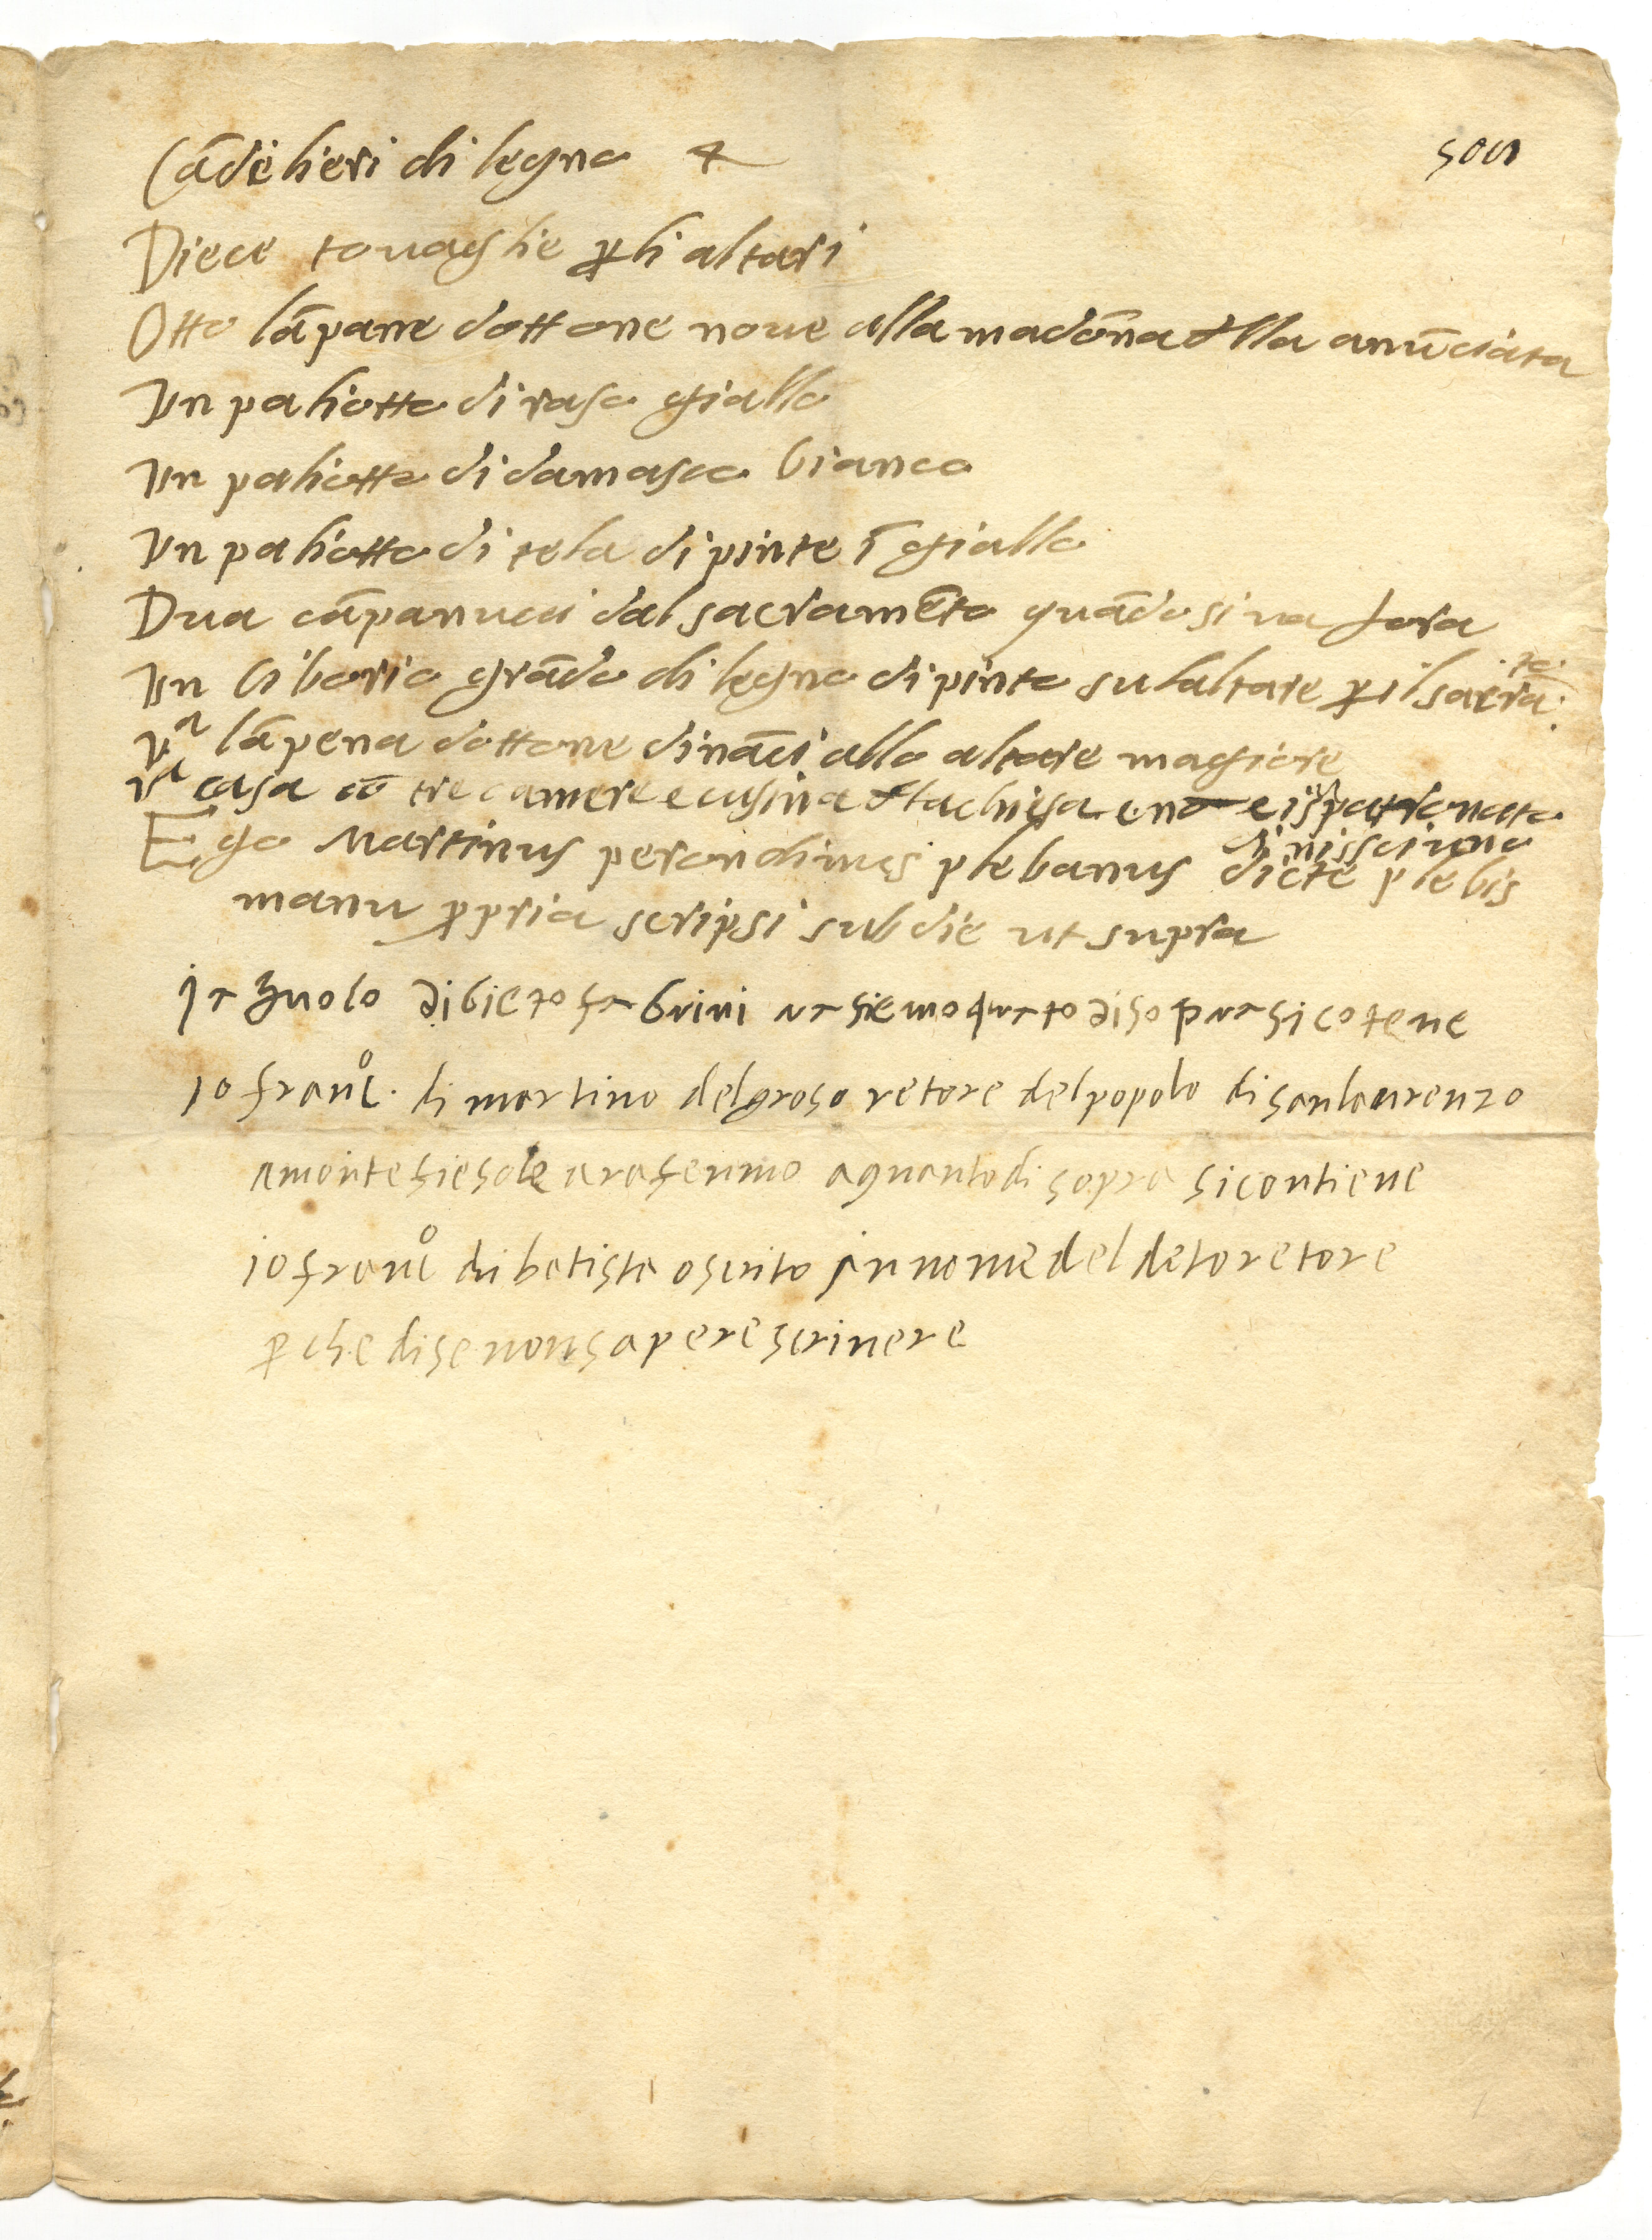 Cādēlieri di legno 4
Diece tovaglie ꝑ li altari
Otto lāpane dottone nove alla madōna della anūciata
Un paliotto di raso giallo
Un paliotto di damasco bianco
Un paliotto di tela dipinte ī giallo
Dua cāpanucci dal sacramēto quādo si va fora
Un ciborio grādo di legno dipinto sul altare ꝑ il sacrā.to
Vᵃ lāpena dottone dināci allo altare magiore
Vᵃ casa cō tre camere e cusina
Ego Martinus plebanus dicte plebis
manu ꝓpria scripsi sub die ut supra
di soprasicotene
io franᵒ. di martino del groso retore del popolo di san laurenzo
a monte fiesole afermo a quanto di sopra si contiene
io franᵒ di batista o scrito in nome del deto retore
ꝑ che dise non sapere scrivere